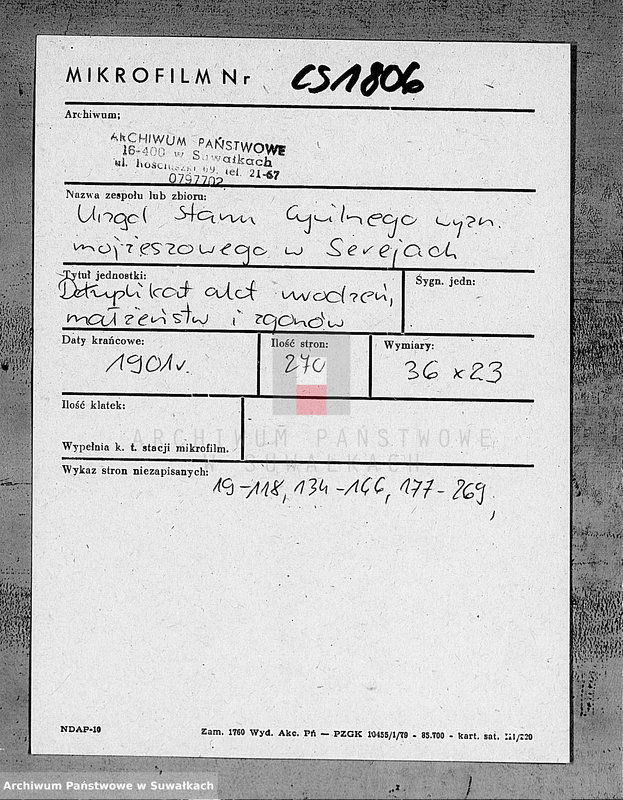 MIKROFILM Nr CS1806
Archiwum;
ARCHIWUM PAŃSTWOWE
16-400 w Suwałkach
ul. Kościuszki 69, tel. 21-67
0797702
Nazwa zespołu lub zbioru:
Urząd Stanu Cywilnego wyzn.
mojżeszowego w Serejach
Tytuł jednostki:
Duplikat akt urodzeń,
małżeństw i zgonów
Sygn. jedn:
Daty krańcowe:
1901r.
Ilość stron:
270
Wymiary:
36 x 23
Ilość klatek:
Wypełnia k. t. stacji mikrofilm.
ARCHIWUM PAŃSTWOWE
W SUWAŁKACH
Wykaz stron niezapisanych:
19-118, 134-146, 177-269,
NDAP-10
Zam. 1760 Wyd. Akc. Pń — PZGK 10455/1/79 - 85.700 - kart. sat. III/220
Archiwum Państwowe w Suwałkach